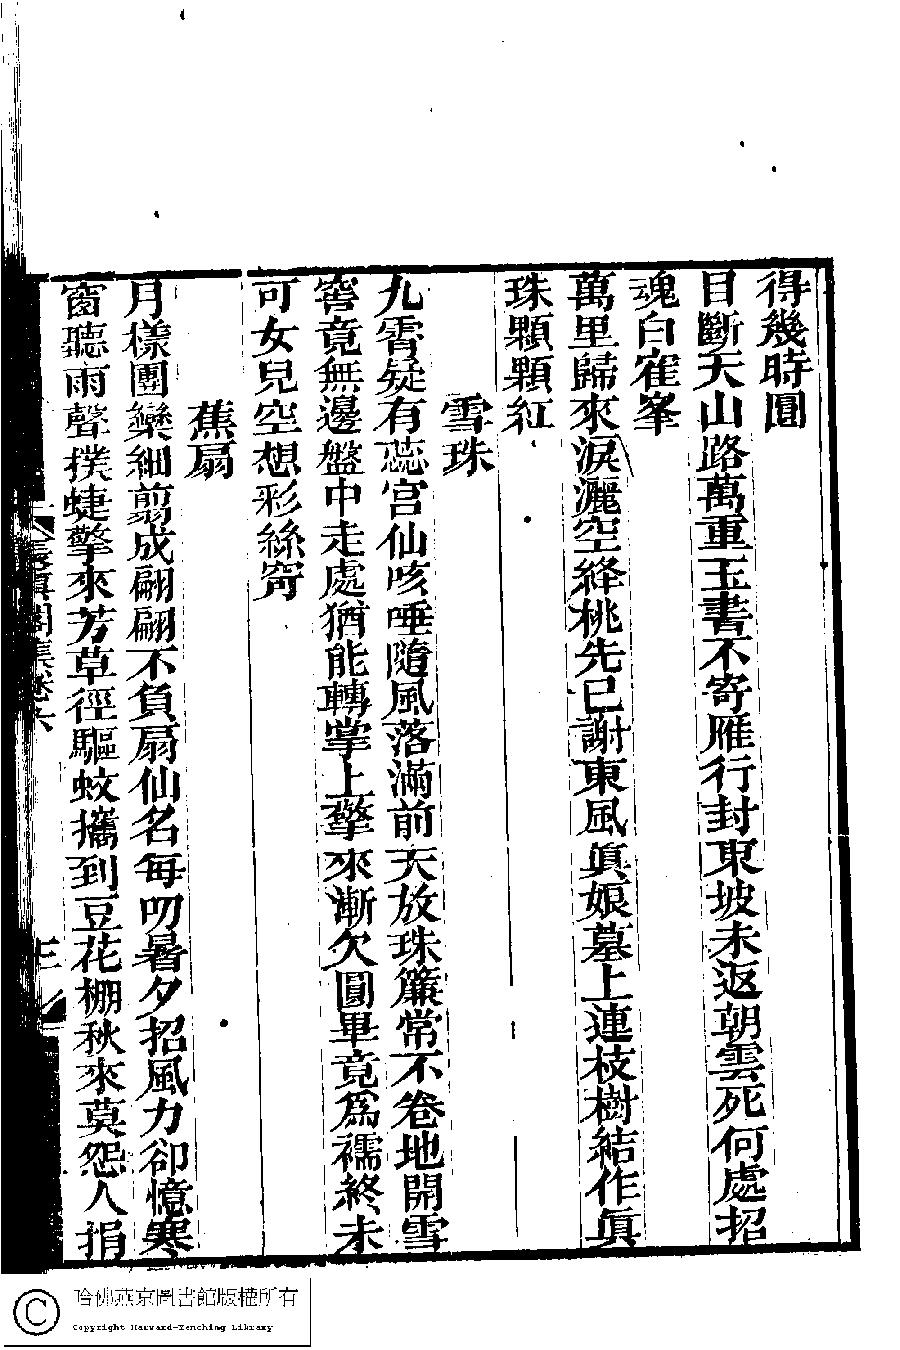 得幾時圓
目斷天山路萬重玉書不寄雁行封東坡未返朝雲死何處招
魂白隺峯
萬里歸來淚灑空絳桃先已謝東風眞娘墓上連枝樹結作眞
珠顆顆紅
雪珠
九霄疑有蕊宫仙咳唾隨風落滿前天放珠簾常不卷地開雪
窖竟無邊盤中走處猶能轉掌上擎來漸欠圓畢竟爲襦終未
可女兒空想彩絲穿
蕉扇
月樣團欒細剪成翩翩不負扇仙名每叨暑夕招風力卻憶寒
窗聽雨聲撲蜨擎來芳草徑驅蚊攜到豆花棚秋來莫怨人捐
長眞閣集卷六
哈佛燕京圖書館版權所有
Copyright Harvard-Yenching Library